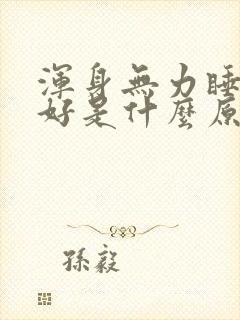 渾身無力睡
好是什麼原
孫毅